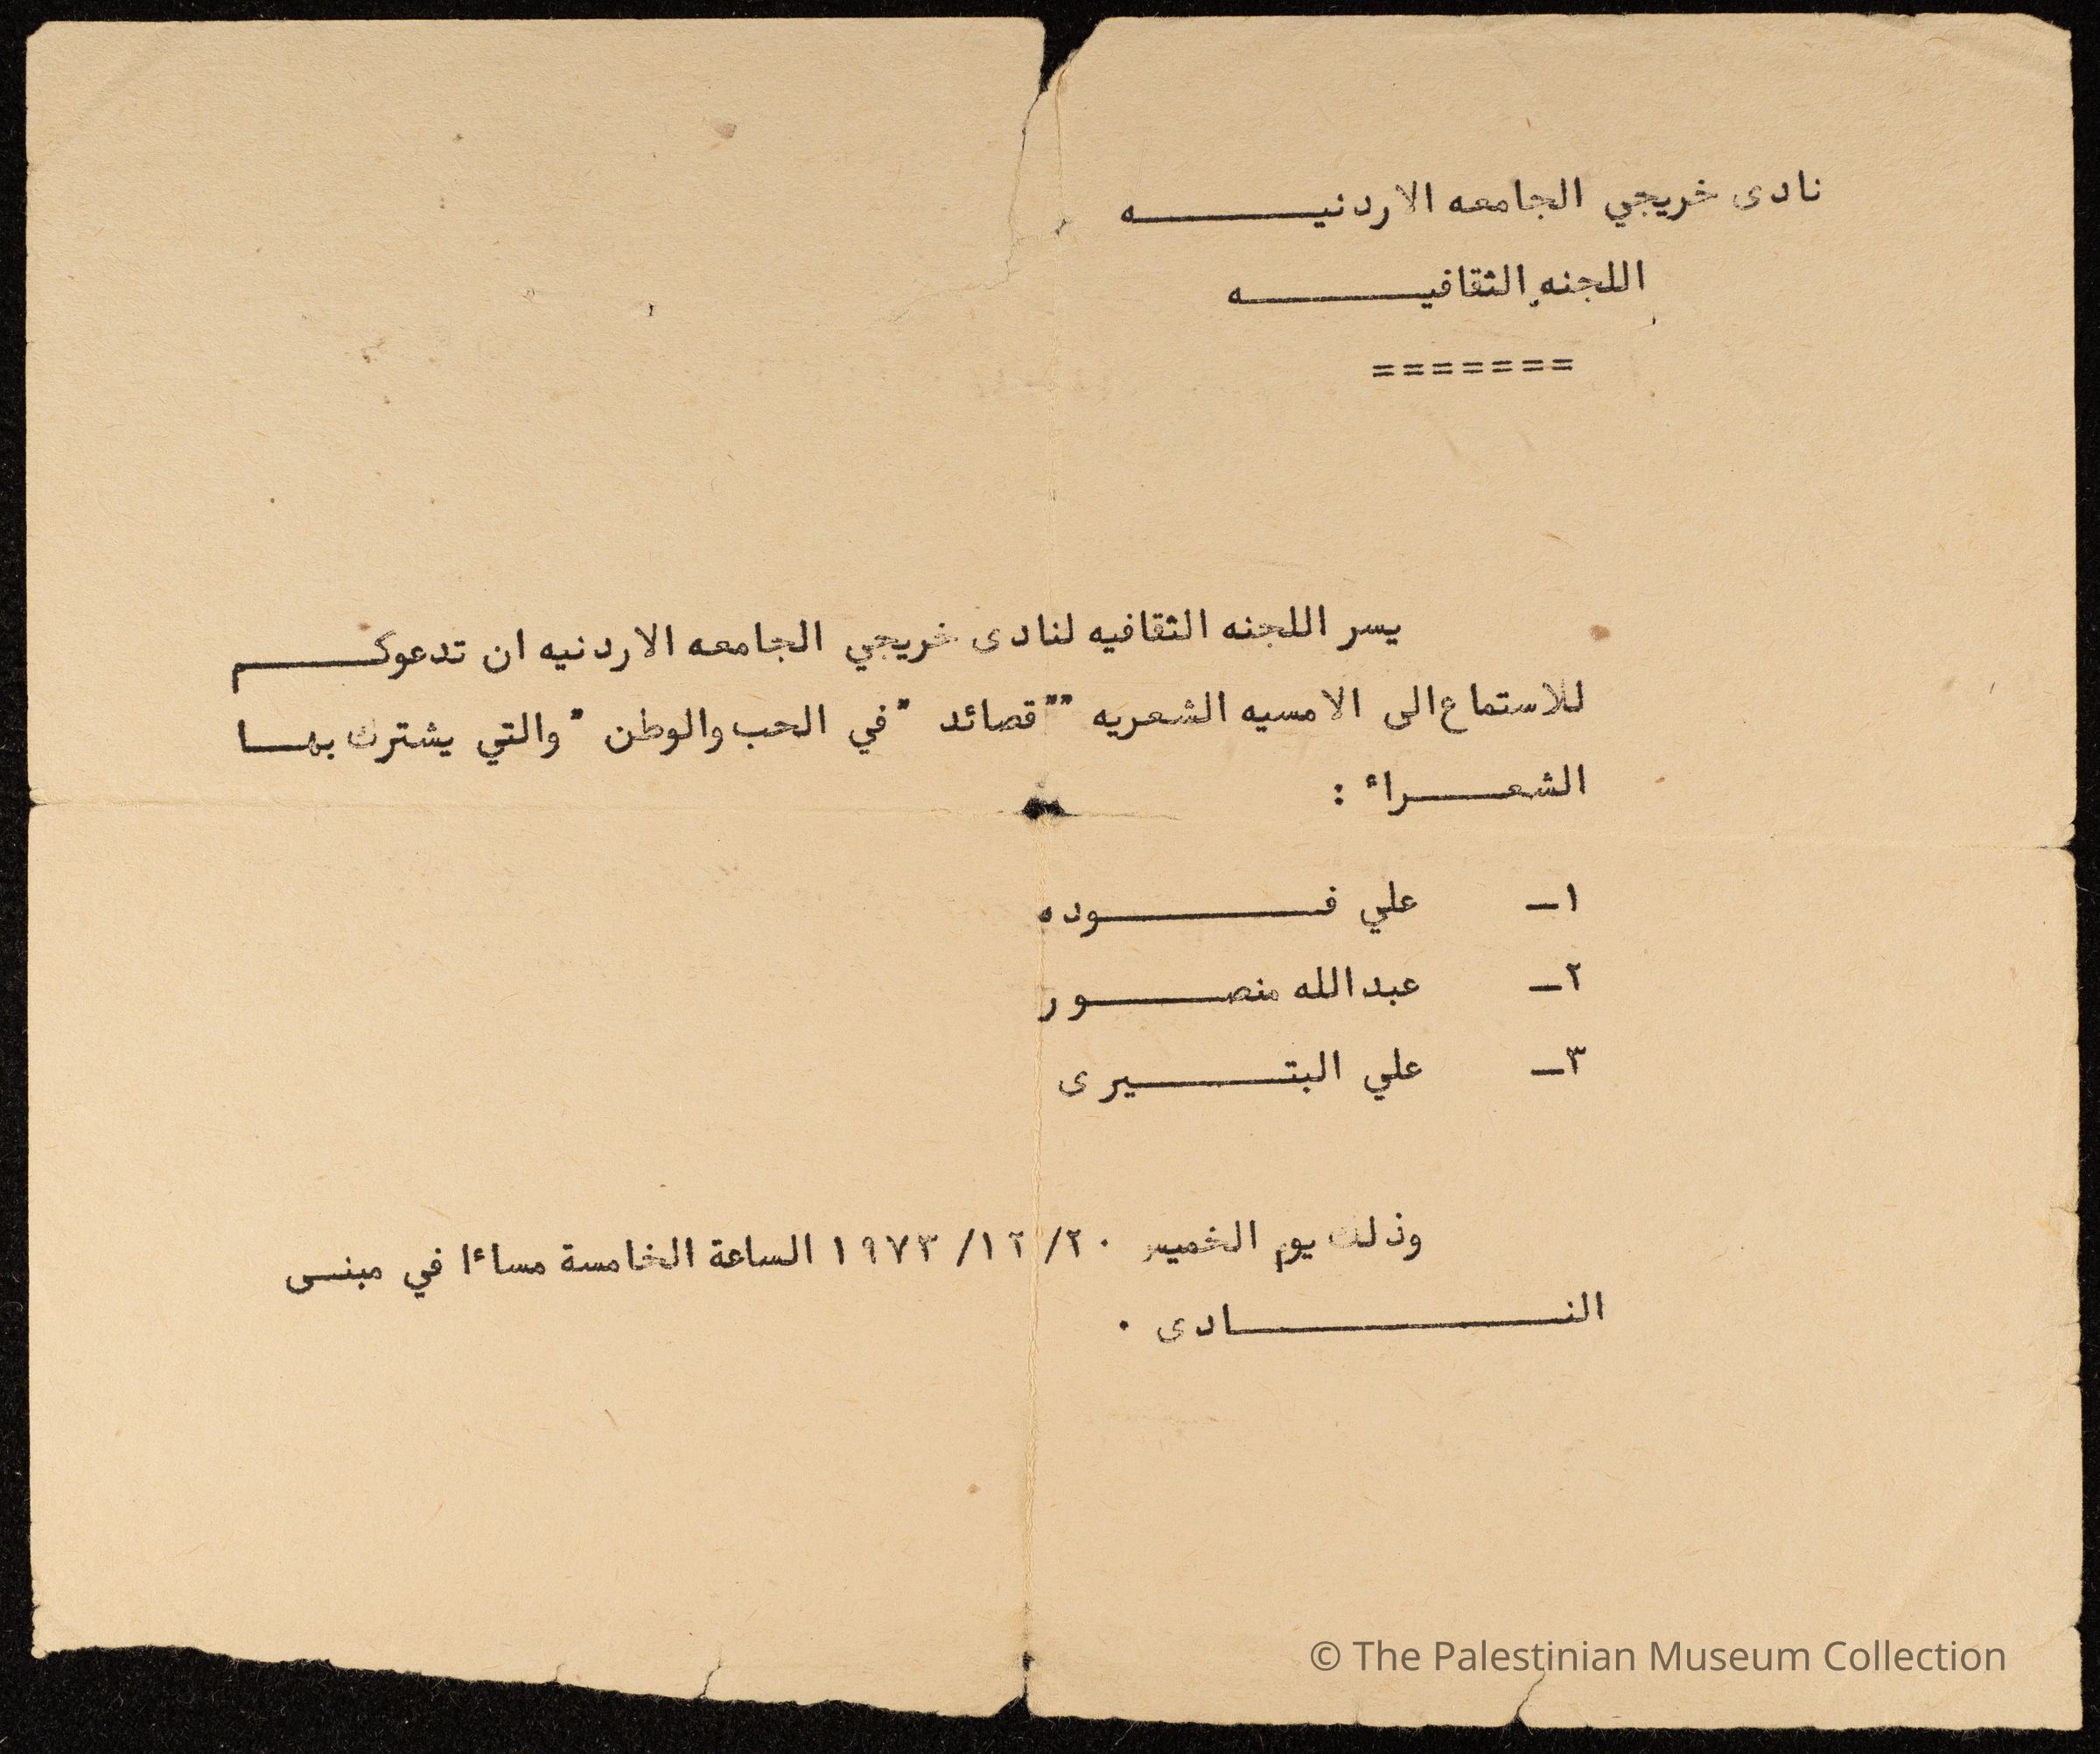 نادى خريجي الجامعه الاردنيـــــــه
اللجنه الثقافيـــــــه
=======
يسر اللجنه الثقافيه لنادى خريجي الجامعه الاردنيه ان تدعوكـــــم
للاستماع الى الامسيه الشعريه "" قصائد " في الحب والوطن " والتي يشترك بهــا
الشعـــــراء :
١ـ علي فـــــــوده
٢ـ عبدالله منصـــــــور
٣ـ علي البتـــــــيرى
وذلك يوم الخميس ٢٠/ ١٢/ ١٩٧٣ الساعة الخامسة مساءا في مبنــى
النـــــــــادى .
© The Palestinian Museum Collection